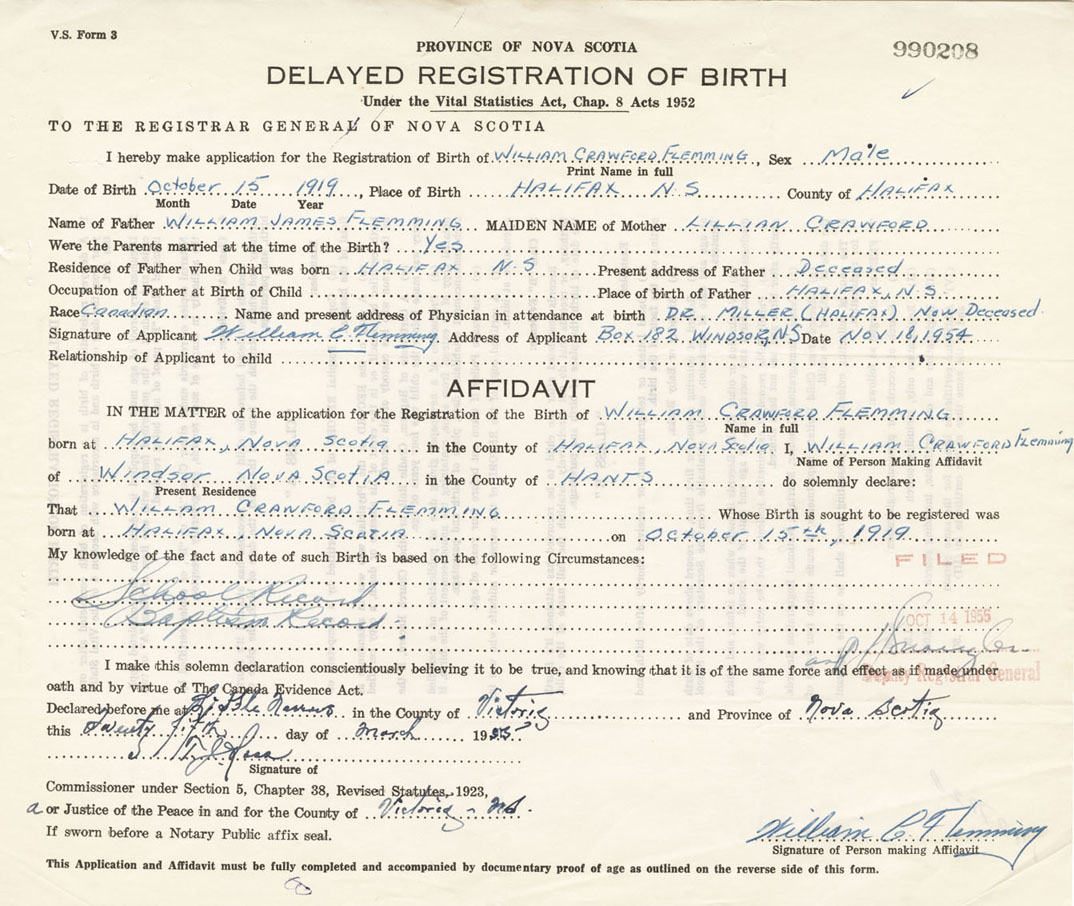 V.S. Form 3
PROVINCE OF NOVA SCOTIA
990208
DELAYED REGISTRATION OF BIRTH
Under the Vital Statistics Act, Chap. 8 Acts 1952
TO THE REGISTRAR GENERAL OF NOVA SCOTIA
I hereby make application for the Registration of Birth of WILLIAM CRAWFORD FLEMMING, Sex Male
Print Name in full
Date of Birth October 15 1919, Place of Birth HALIFAX N.S. County of HALIFAX
Month Date Year
Name of Father WILLIAM JAMES FLEMMING MAIDEN NAME of Mother LILLIAN CRAWFORD
Were the Parents married at the time of the Birth? Yes
Residence of Father when Child was born HALIFAX N.S. Present address of Father Deceased
Occupation of Father at Birth of Child Place of birth of Father HALIFAX, N.S.
Race Canadian Name and present address of Physician in attendance at birth DR. MILLER (HALIFAX) NOW Deceased
Signature of Applicant William C. Flemming Address of Applicant BOX 182, WINDSOR, NS Date NOV 18, 1954
Relationship of Applicant to child
AFFIDAVIT
IN THE MATTER of the application for the Registration of the Birth of WILLIAM CRAWFORD FLEMMING
Name in full
born at HALIFAX, NOVA SCOTIA in the County of HALIFAX, NOVA SCOTIA I, WILLIAM CRAWFORD Flemming
Name of Person Making Affidavit
of Windsor NOVA SCOTIA in the County of HANTS do solemnly declare:
Present Residence
That WILLIAM CRAWFORD FLEMMING Whose Birth is sought to be registered was
born at HALIFAX, NOVA SCOTIA on October 15th, 1919
My knowledge of the fact and date of such Birth is based on the following Circumstances:
FILED
School Record
Baptism Record
OCT 14 1955
I make this solemn declaration conscientiously believing it to be true, and knowing that it is of the same force and effect as if made under
Deputy Registrar General
oath and by virtue of The Canada Evidence Act.
Declared before me at Little Narrows in the County of Victoria and Province of Nova Scotia
this Twenty fifth day of March 1955
Signature of
Commissioner under Section 5, Chapter 38, Revised Statutes, 1923,
a or Justice of the Peace in and for the County of Victoria - NS.
If sworn before a Notary Public affix seal.
William C. Flemming
Signature of Person making Affidavit
This Application and Affidavit must be fully completed and accompanied by documentary proof of age as outlined on the reverse side of this form.